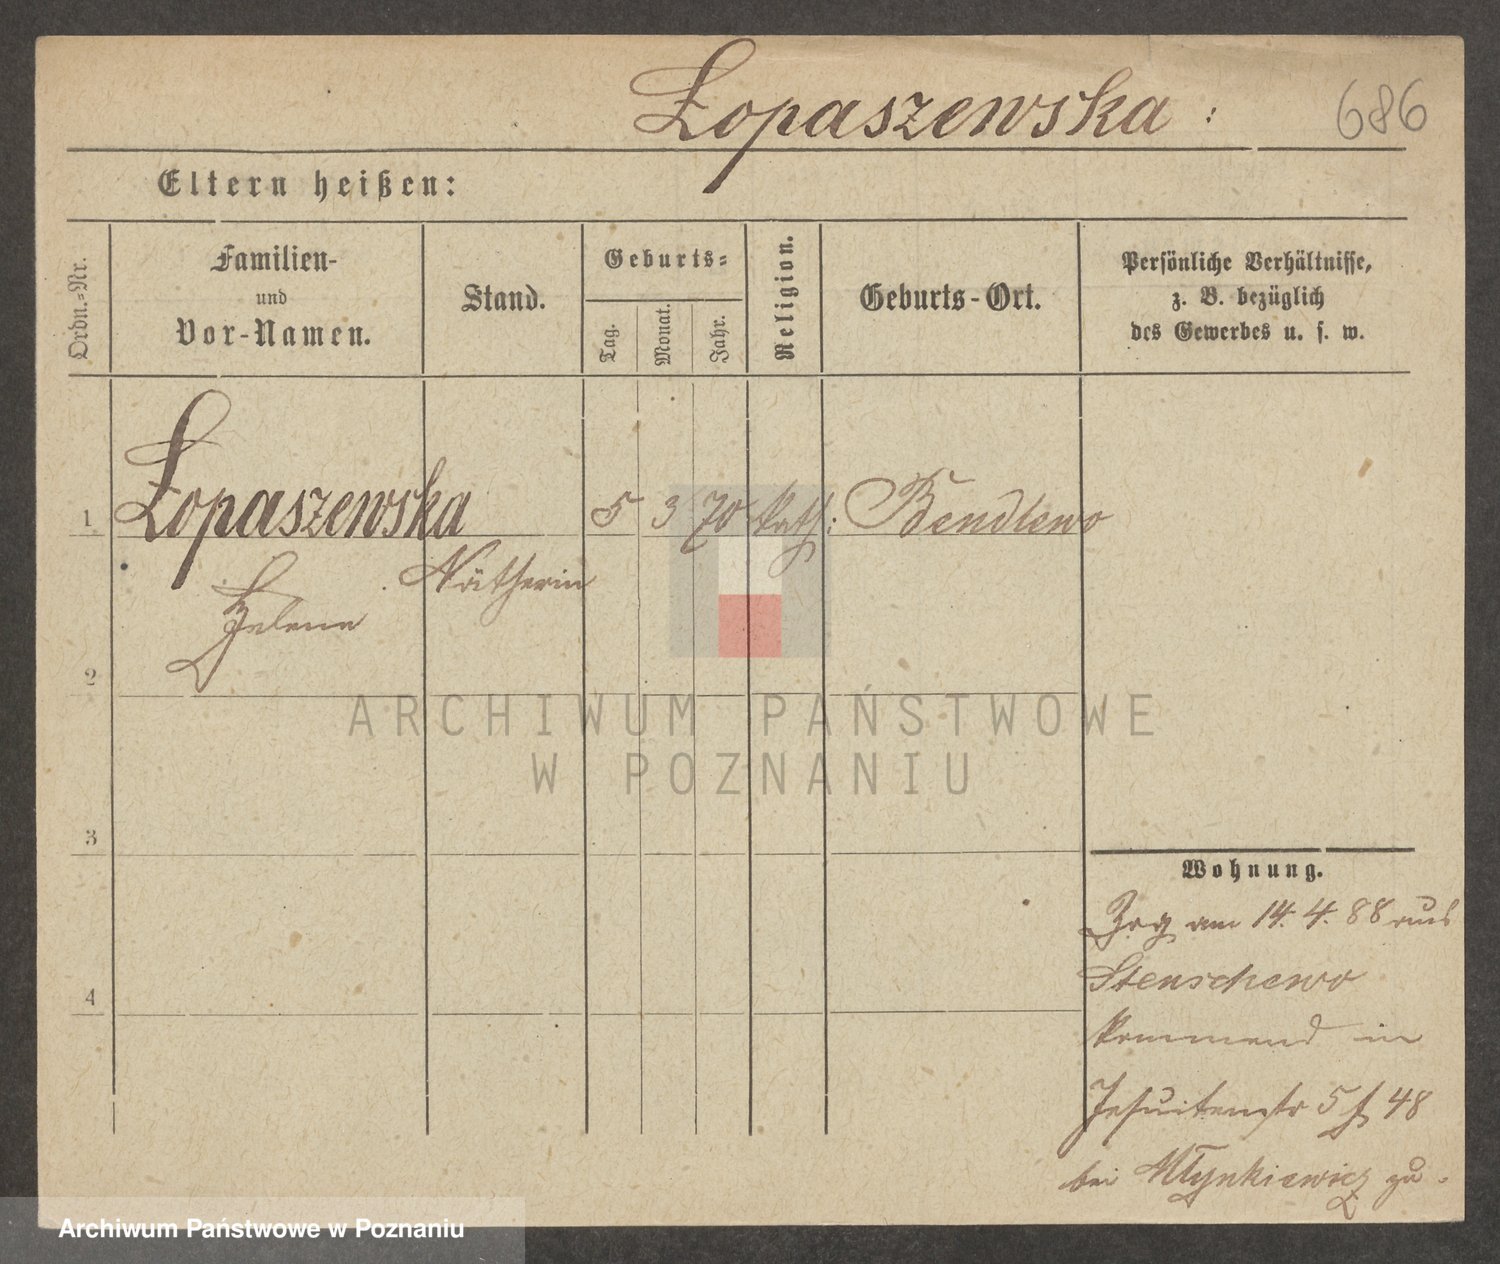 Łopaszewska :
686
Eltern heißen:
Ordn.=Nr.
Familien-
und
Vor-Namen.
Stand.
Geburts=
Tag.
Monat.
Jahr.
Religion.
Geburts-Ort.
Persönliche Verhältnisse,
z. B. bezüglich
des Gewerbes u. s. w.
1 Łopaszewska 5 3 70 kath: Bendlewo
Nätherin
Helene
2
ARCHIWUM PAŃSTWOWE
W POZNANIU
3
Wohnung.
Zog am 14. 4. 88 aus
Stenschewo
kommend in
Jesuitenstr 5 48
bei Młynkiewicz zu.
4
Archiwum Państwowe w Poznaniu